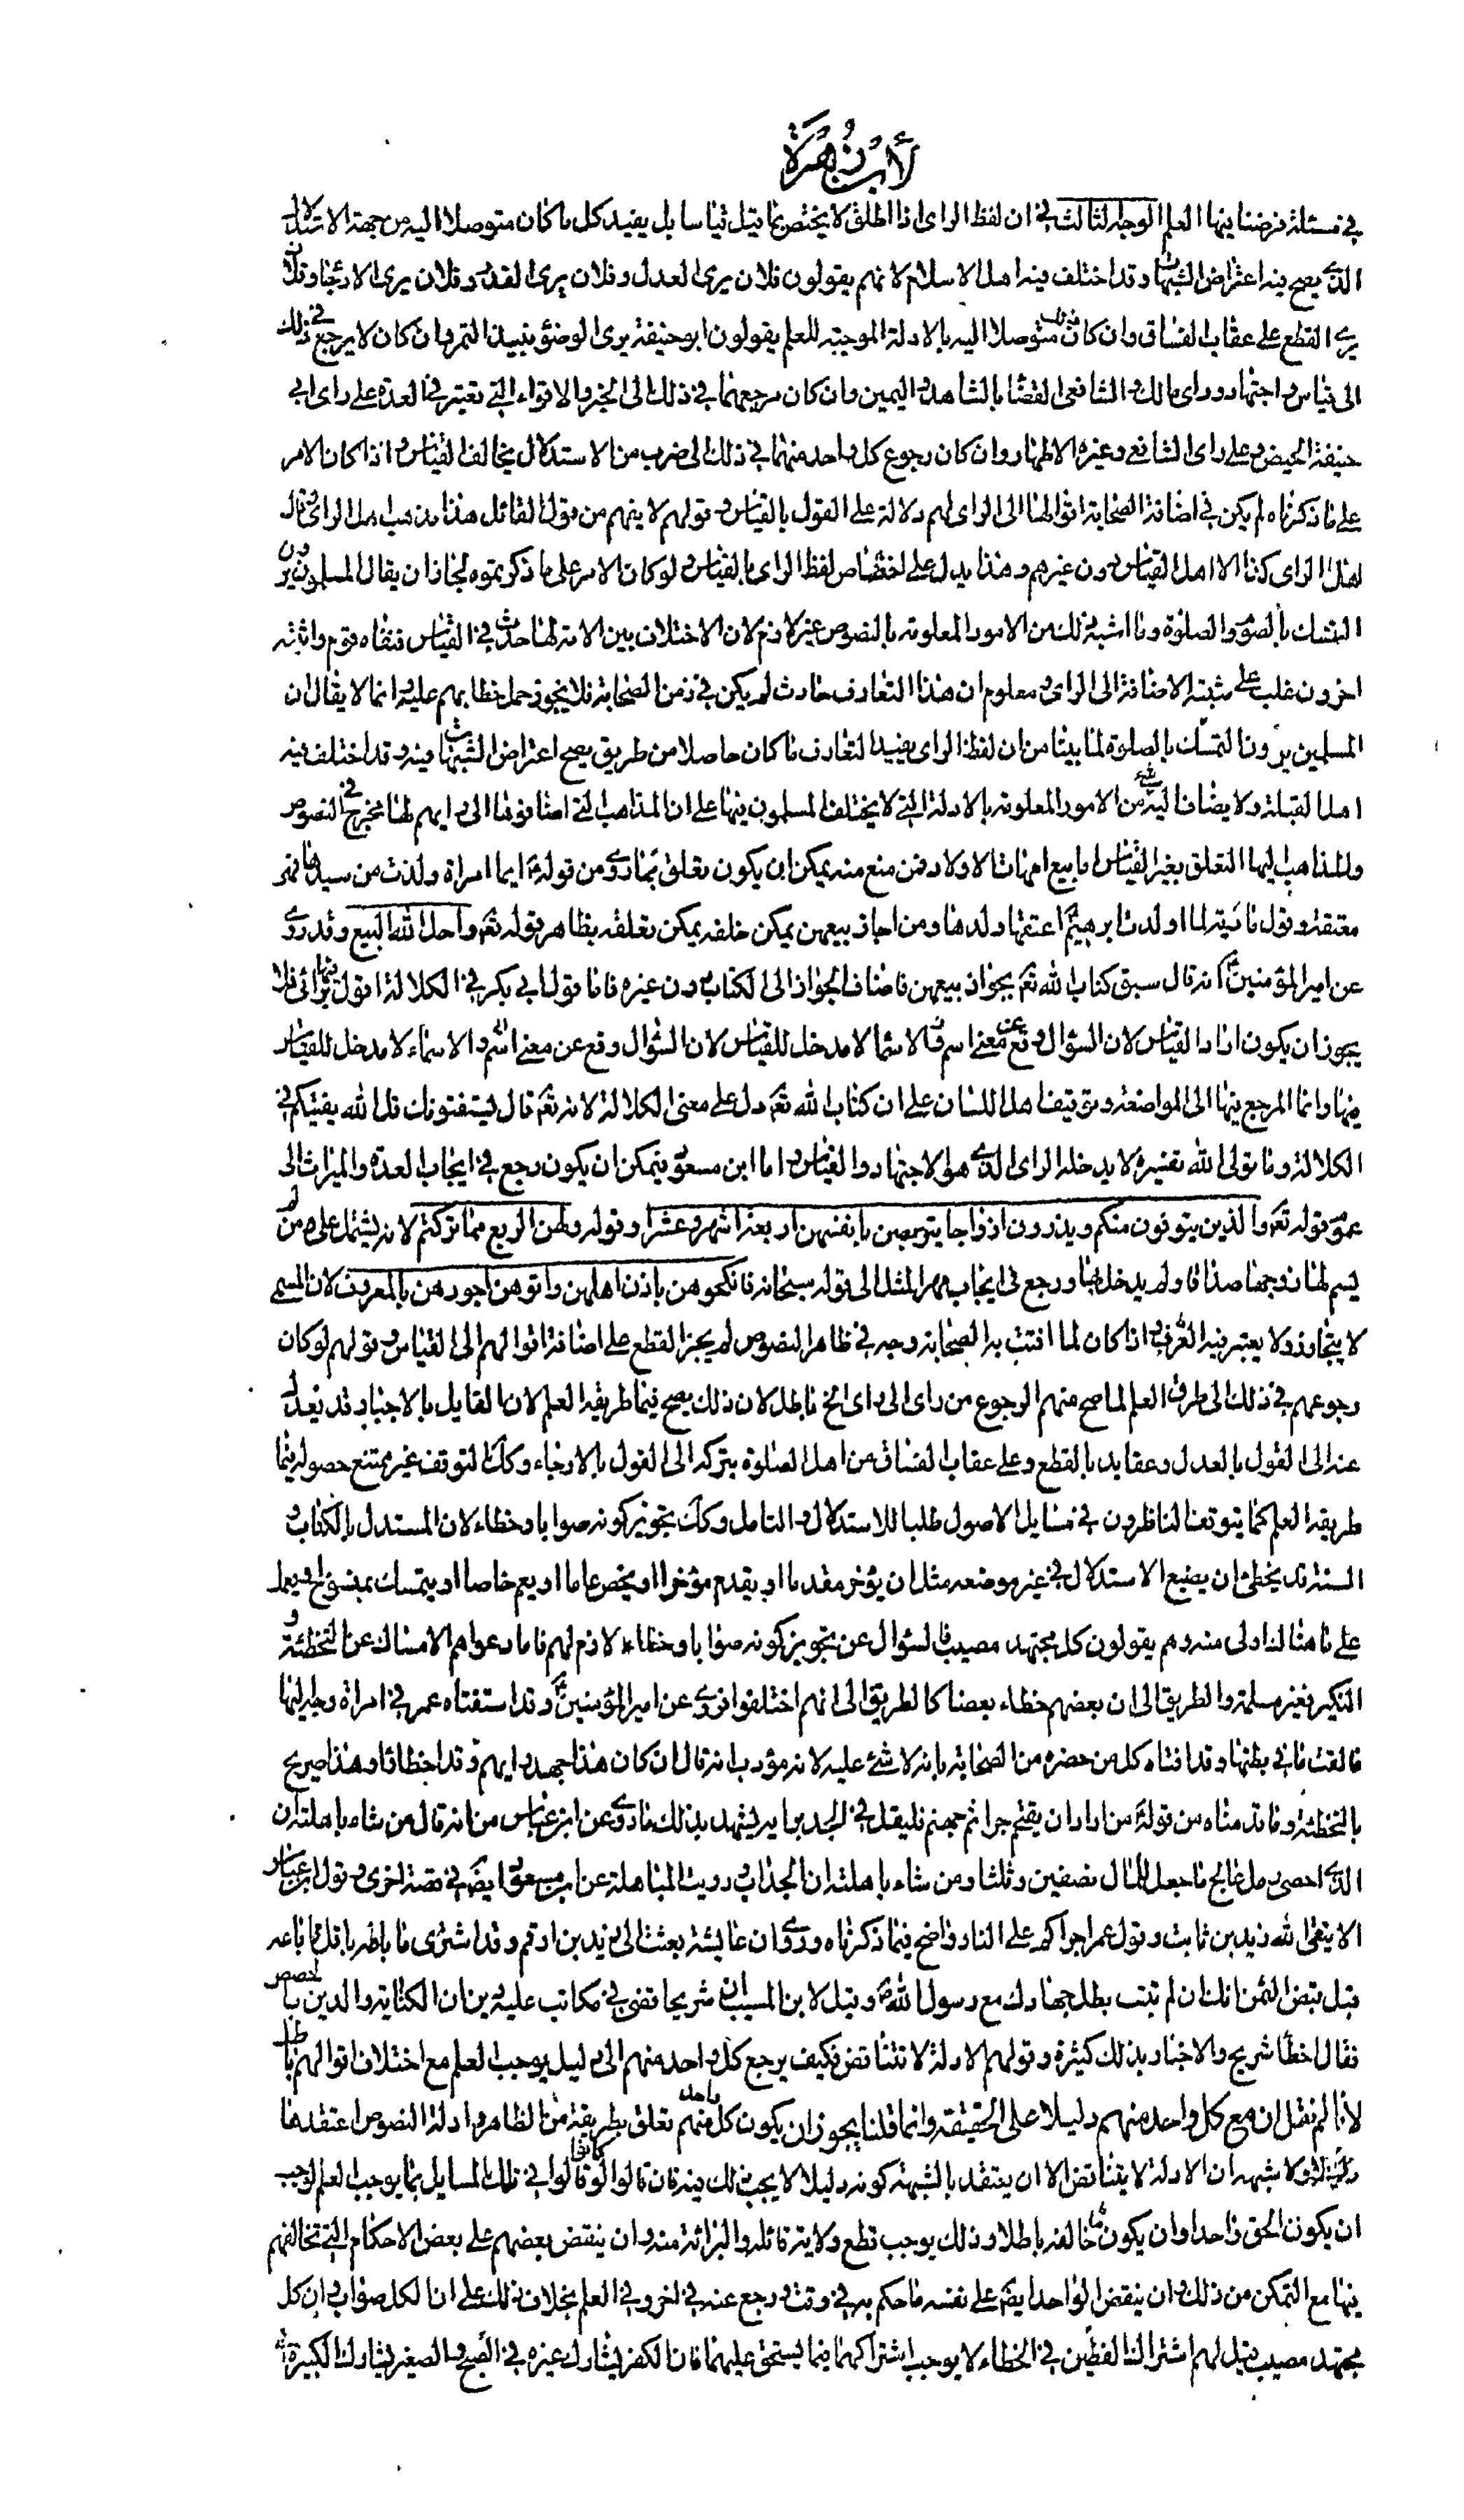 لأبن زهرة
في مسئلة فرضنا فيها العلم الوجه الثالث في ان لفظ الراى اذا اطلق لا يختص بما قيل قياسا بل يفيد كل ما كان متوصلا اليه من جهة الاستدلال
الذي يصح فيه اعتراض الشبهات وقد اختلف فيه اهل الاسلام لانهم يقولون فلان يرى العدل وفلان يرى القدر وفلان يرى الارجاء وفلان
يرى القطع على عقاب الفساق وان كان ذلك متوصلا اليه بالادلة الموجبة للعلم يقولون ابو حنيفة يرى الوضوء بنبيذ التمر وان كان لا يرجع في ذلك
الى قياس واجتهاد وراى مالك والشافعى القضاء بالشاهد واليمين وان كان مرجعهما في ذلك الى الخبر والاقراء التي تعتبر في العدة على راى ابي
حنيفة الحيض وعلى راى الشافعي وغيره الاطهار وان كان رجوع كل واحد منهما في ذلك الى ضرب من الاستدلال يخالف القياس واذا كان الامر
على ما ذكرناه لم يكن في اضافة الصحابة اقوالها الى الراى لهم دلالة على القول بالقياس وقولهم لا يفهم من قول القائل هذا مذهب اهل الراى وقال
اهل الراى كذا الا اهل القياس دون غيرهم وهذا يدل على اختصاص لفظ الراى بالقياس ولو كان الامر على ما ذكرتموه لجاز ان يقال المسلمون يرون
التمسك بالصوم والصلوة وما اشبه ذلك من الامور المعلومة بالنصوص غير لازم لان الاختلاف بين الامة لما حدث في القياس فنفاه قوم واثبته
اخرون غلب على مثبته الاضافة الى الراى ومعلوم ان هذا التعارف حادث لم يكن في زمن الصحابة فلا يجوز حمل خطابهم عليه وانما لا يقال ان
المسلمين يرون التمسك بالصلوة لما بينا من ان لفظ الراى يفيد التعارف ما كان حاصلا من طريق يصح اعتراض الشبهات فيه وقد اختلف فيه
اهل القبلة ولا يضاف اليه شيء من الامور المعلومة بالادلة التي لا يختلف المسلمون فيها على ان المذاهب التي اضافوها الى رايهم لها مخرج في النصوص
وللذاهب اليها التعلق بغير القياس اما بيع امهات الاولاد فمن منع منه يمكن ان يكون تعلق بما روى من قوله ايما امراة ولدت من سيدها فهى
معتقة وقوله مارية لما ولدت ابرهيم اعتقها ولدها ومن اجاز بيعهن يمكن خلفه يمكن تعلقه بظاهر قوله تعالى واحل الله البيع وقد روى
عن امير المؤمنين انه قال سبق كتاب الله تعالى بجواز بيعهن فاضاف الجواز الى الكتاب دون غيره فاما قول ابي بكر في الكلالة اقول فيها برائى فلا
يجوز ان يكون اراد القياس لان السؤال وقع عن معنى اسم والاسماء لا مدخل للقياس لان السؤال وقع عن معنى اسم والاسماء لا مدخل للقياس
فيها وانما المرجع فيها الى المواضعة وتوقيف اهل اللسان على ان كتاب الله تعالى دل على معنى الكلالة لانه تعالى قال يستفتونك قل الله يفتيكم في
الكلالة وما تولى الله تفسيره لا يدخله الراى الذي هو الاجتهاد والقياس واما ابن مسعود فيمكن ان يكون رجع في ايجاب العدة والميراث الى
عموم قوله تعالى والذين يتوفون منكم ويذرون ازواجا يتربصن بانفسهن اربعة اشهر وعشرا وقوله ولهن الربع مما تركتم لانه يشتمل على من لم
يسم لها زوجها صداقا ولم يدخل بها ورجع في ايجاب مهر المثل الى قوله سبحانه فانكحوهن باذن اهلهن واتوهن اجورهن بالمعروف لان المسمى
لا يتجاوز ولا يعتبر فيه العرف واذا كان لما افتت به الصحابة وجه في ظاهر النصوص لم يجز القطع على اضافة اقوالهم الى القياس وقولهم لو كان
رجوعهم في ذلك الى طرق العلم لما صح منهم الرجوع من راى الى راى اخ فاطل لان ذلك يصح فيما طريقه العلم لان القايل بالاجبار قد يعدل
عنه الى القول بالعدل وعقايد بالقطع وعلى عقاب الفساق من اهل الصلوة يتركه الى القول بالارجاء وكذلك التوقف غير ممتنع حصوله فيما
طريقه العلم كما يتوقف الناظرون في مسايل الاصول طلبا للاستدلال والتامل وكذلك تجويز كونه صوابا وخطاء لان المستدل بالكتاب و
السنة قد يخطئ ان يضيع الاستدلال في غير موضعه مثل ان يؤخر مقدما او يقدم مؤخرا او يخص عاما او يعم خاصا او يتمسك بمنسوخ او يعمل
على ما هنالك اولى منه وهم يقولون كل مجتهد مصيب فالسؤال عن تجويز كونه صوابا وخطاء لازم لهم فاما دعواهم الامساك عن التخطئة و
النكير فغير مسلمة والطريق الى ان بعضهم خطاء بعضا كالطريق الى انهم اختلفوا فروى عن امير المؤمنين وقد استفتاه عمر في امراة وجه اليها
فالقت ما في بطنها وقد افتاه كل من حضره من الصحابة بانه لا شئ عليه لانه مؤدب انه قال ان كان هذا جهد رايهم فقد اخطاؤا وهذا صريح
بالتخطئة وما قدمناه من قوله من اراد ان يقتحم جراثيم جهنم فليقل في الجد برايه يشهد بذلك ما روى عن ابن عباس من انه قال من شاء باهلته ان
الذي احصى رمل عالج ما جعل للمال نصفين وثلثا ومن شاء باهلته ان الجد اب ورويت المباهلة عن ابن مسعود ايضا في قصة اخرى وقول ابن عباس
الا يتقى الله زيد بن ثابت وقول عمر اجراكم على النار واضح فيما ذكرناه وروى ان عايشة بعثت الى زيد بن ارقم وقد اشترى ما باعه باقل مما باعه
قبل قبض الثمن انك ان لم تتب بطل جهادك مع رسول الله وقيل لابن المسيب ان شريحا قضى في مكاتب عليه دين ان الكتابة والدين بالحصص
فقال خطأ شريح والاخبار بذلك كثيرة وقولهم الادلة لا تتناقض فكيف يرجع كل واحد منهم الى دليل يوجب العلم مع اختلاف اقوالهم باطل
لانا لم نقل ان مع كل واحد منهم دليلا على الحقيقة وانما قلنا يجوز ان يكون كل واحد منهم تعلق بطريقة من الظاهر وادلة النصوص اعتقدها
دليلا ولا شبهة ان الادلة لا يتناقض الا ان يعتقد بالشبهة كونه دليلا لا يجب ذلك فيه فان قالوا لو كانوا قالوا في تلك المسايل بما يوجب العلم لوجب
ان يكون الحق واحدا وان يكون ما خالفه باطلا وذلك يوجب قطع ولاية قائله والبرائة منه وان ينقض بعضهم على بعض الاحكام التي تخالفهم
فيها مع التمكن من ذلك وان ينقض الواحد ايضا على نفسه ما حكم به في وقت ورجع عنه في اخر وفي العلم بخلاف ذلك على ان الكل صواب وان كل
مجتهد مصيب قيل لهم اشتراك الفظين في الخطاء لا يوجب اشتراكهما فيما يستحق عليهما فان الكفر يشارك غيره في القبح والصغير يشارك الكبيرة